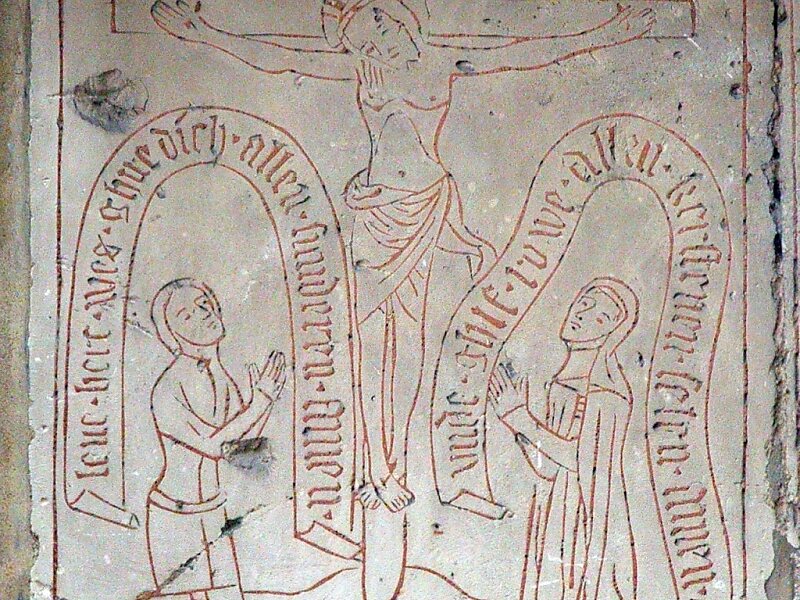 leue · here · wes · ghue dich · allen · sunderen · Amen
unde · ghif · ruwe · allen · kerstenen · selen · Amen